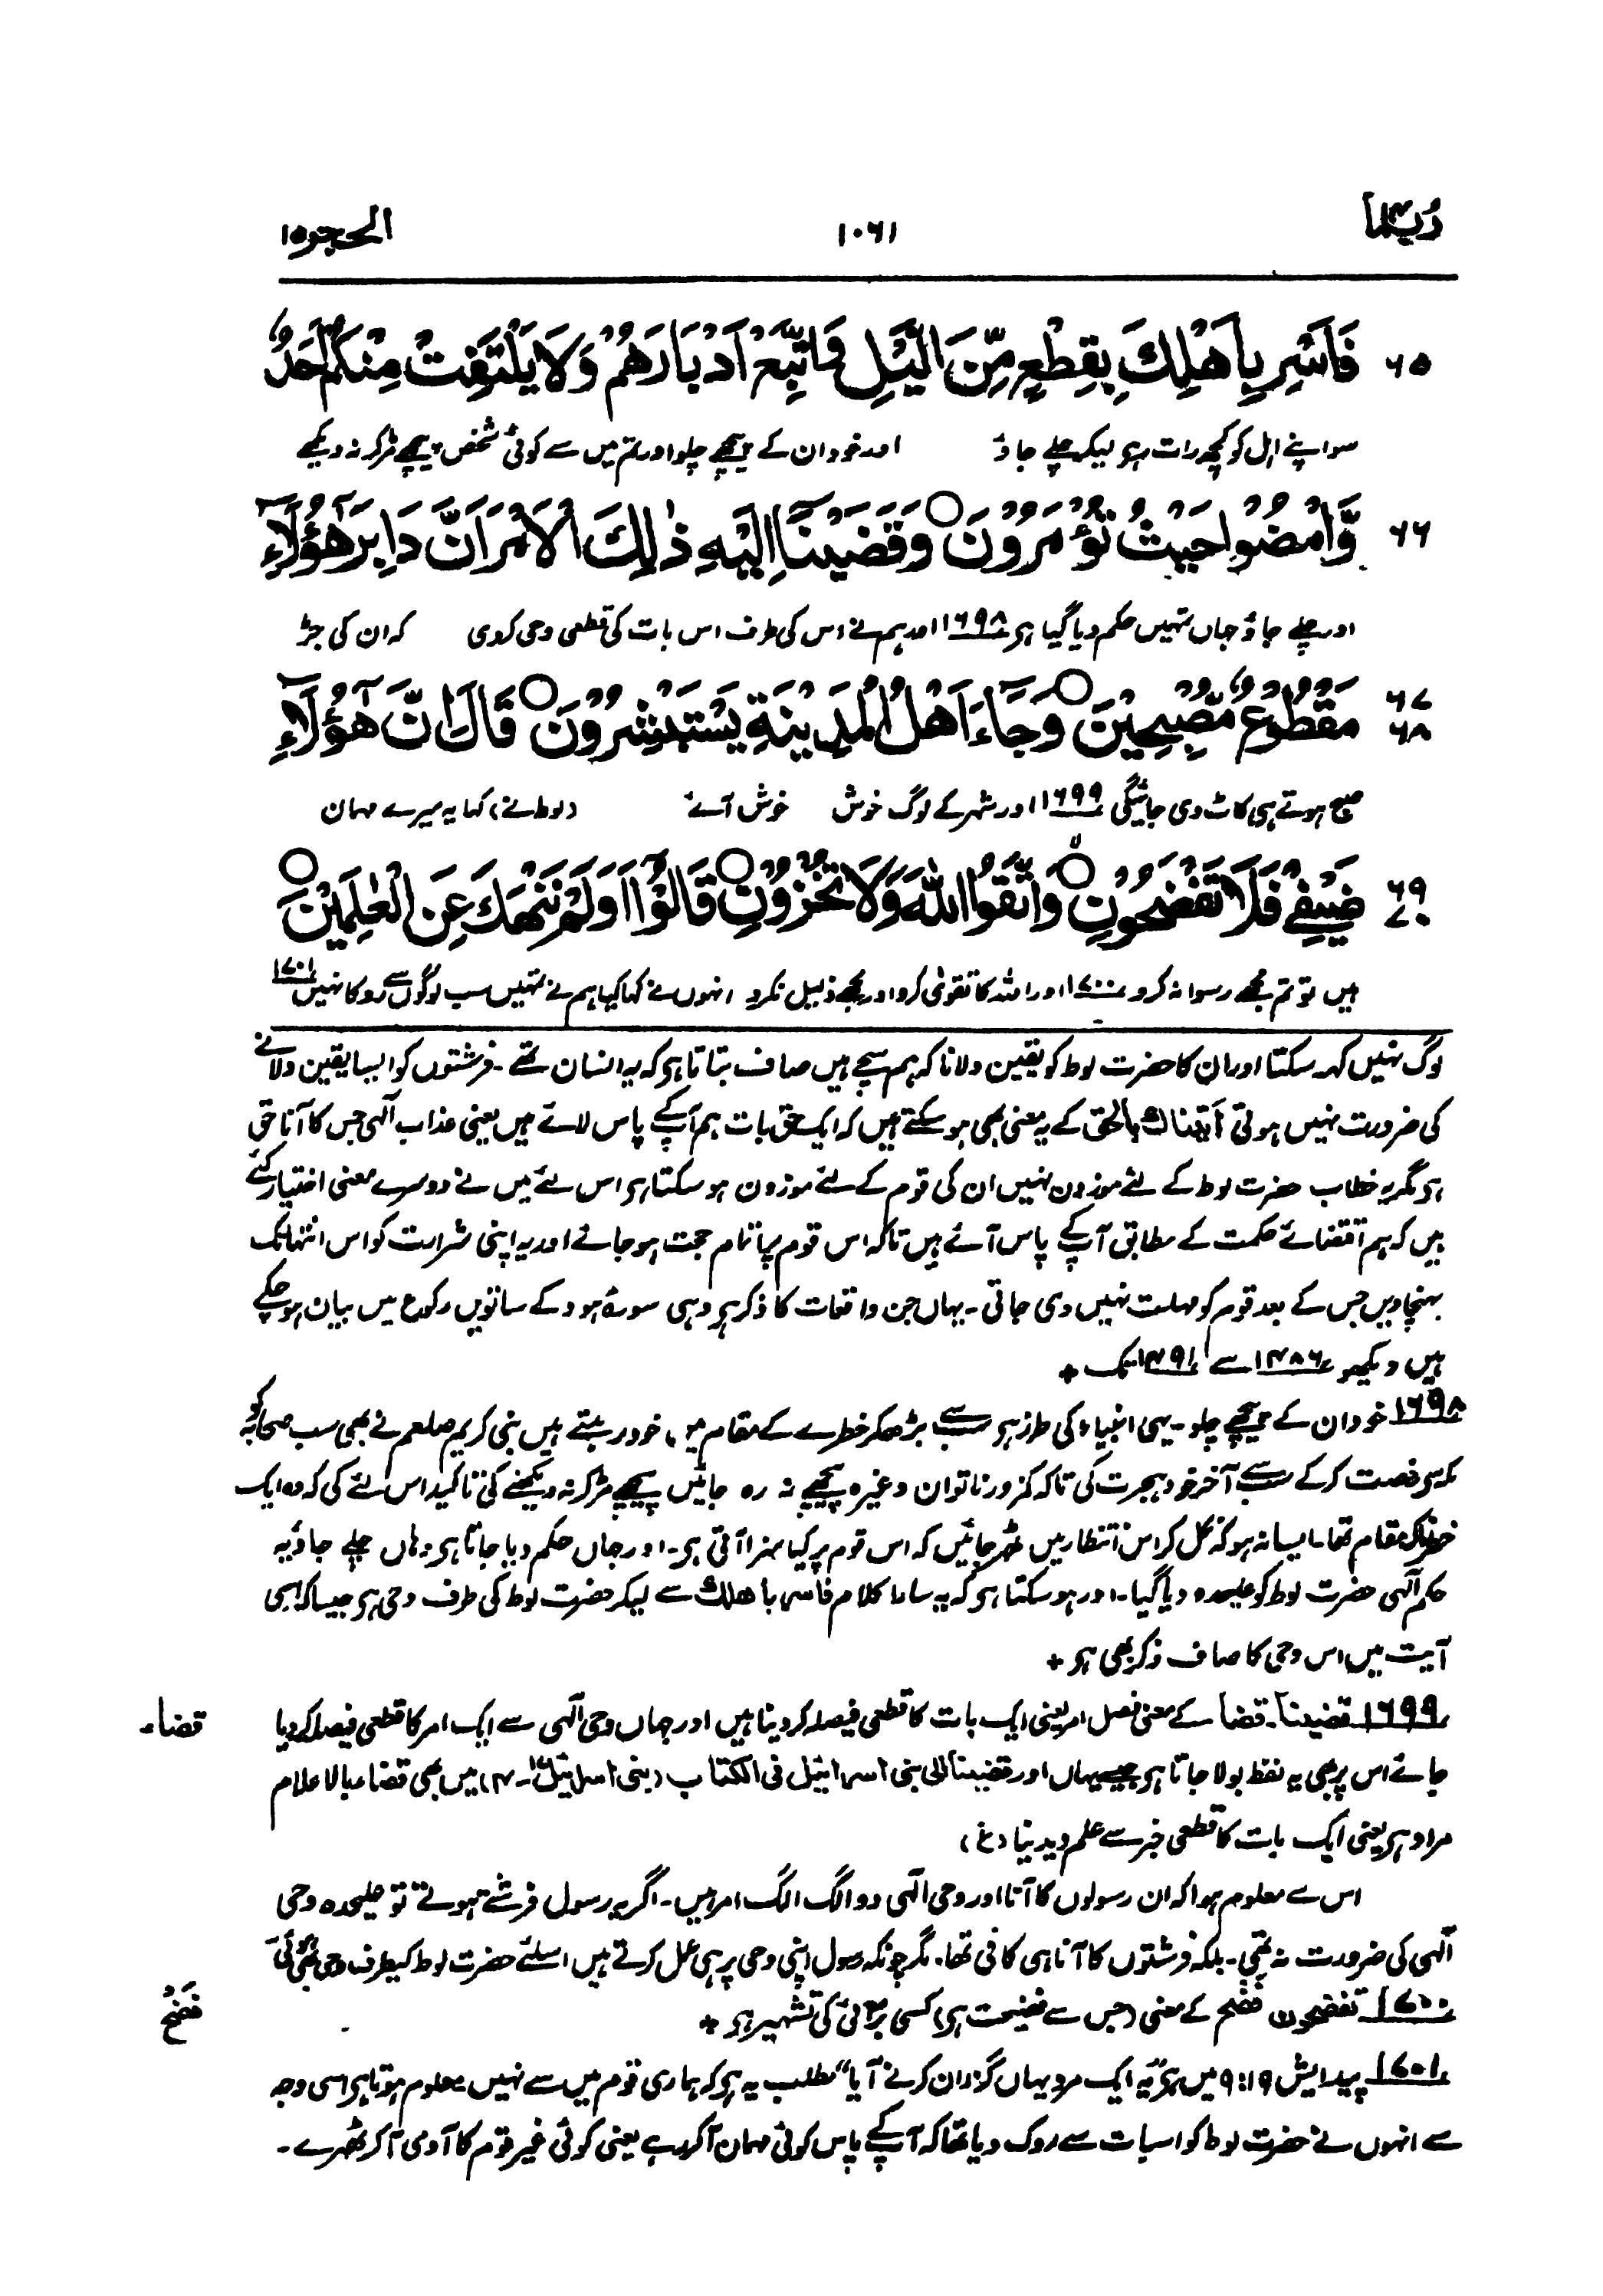 ربما ١٤
١٠٦١
الحجر ١٥
٦٥ فَاَسْرِ بِاَهْلِكَ بِقِطْعٍ مِّنَ الَّيْلِ وَاتَّبِعْ اَدْبَارَهُمْ وَلَا يَلْتَفِتْ مِنْكُمْ اَحَدٌ
سو اپنے اہل کو کچھ رات رہے لیکر چلے جاؤ اور خود ان کے پیچھے چلو اور تم میں سے کوئی شخص پیچھے مڑ کر نہ دیکھے
٦٦ وَّامْضُوْا حَيْثُ تُؤْمَرُوْنَ ○ وَقَضَيْنَآ اِلَيْهِ ذٰلِكَ الْاَمْرَ اَنَّ دَابِرَ هٰٓؤُلَآءِ
اور چلے جاؤ جہاں تمہیں حکم دیا گیا ہو ١٦٩٨ اور ہم نے اس کی طرف اس بات کی قطعی وحی کر دی کہ ان کی جڑ
٦٧ ٦٨ مَقْطُوْعٌ مُّصْبِحِيْنَ ○ وَجَآءَ اَهْلُ الْمَدِيْنَةِ يَسْتَبْشِرُوْنَ ○ قَالَ اِنَّ هٰٓؤُلَآءِ
صبح ہوتے ہی کاٹ دی جائیگی ١٦٩٩ اور شہر کے لوگ خوش خوش آئے (لوط نے) کہا یہ میرے مہمان
٦٩ ٧٠ ضَيْفِيْ فَلَا تَفْضَحُوْنِ ○ وَاتَّقُوا اللّٰهَ وَلَا تُخْزُوْنِ ○ قَالُوْٓا اَوَلَمْ نَنْهَكَ عَنِ الْعٰلَمِيْنَ ○
ہیں تو تم مجھے رسوا نہ کرو ١٧٠٠ اور اللہ کا تقویٰ کرو اور مجھے ذلیل نکرو انہوں نے کہا کیا ہم نے تمہیں سب لوگوں سے روکا نہیں ١٧٠١
لوگ نہیں کہہ سکتا اور ان کا حضرت لوط کو یقین دلانا کہ ہم سچے ہیں صاف بتاتا ہو کہ یہ انسان تھے ۔ فرشتوں کو ایسا یقین دلانے
کی ضرورت نہیں ہوتی أتیناك بالحق کے یہ معنی بھی ہو سکتے ہیں کہ ایک حق بات ہم آپ کے پاس لائے ہیں یعنی عذاب الٰہی جس کا آنا حق
ہو مگر یہ خطاب حضرت لوط کے لئے موزون نہیں ان کی قوم کے لئے موزون ہو سکتا ہو اس لئے میں نے دوسرے معنی اختیار کئے
ہیں کہ ہم اقتضائے حکمت کے مطابق آپ کے پاس آئے ہیں تاکہ اس قوم پر اتمام حجت ہو جائے اور یہ اپنی شرارت کو اس انتہا تک
پہنچا دیں جس کے بعد قوم کو مہلت نہیں دی جاتی ۔ یہاں جن واقعات کا ذکر ہو وہی سورۂ ہود کے ساتویں رکوع میں بیان ہو چکے
ہیں دیکھو ١٤٨٦ سے ١٤٩١ تک +
١٦٩٨ خود ان کے پیچھے چلو ۔ یہی انبیاء کی طرز ہو سب سے بڑھکر خطرے کے مقام میں خود رہتے ہیں نبی کریم صلعم نے بھی سب صحابہ کو
مکہ سے رخصت کر کے سب سے آخر خود ہجرت کی تاکہ کمزور ناتوان وغیرہ پیچھے نہ رہ جائیں پیچھے مڑ کر نہ دیکھنے کی تاکید اس لئے کی کہ وہ ایک
خطرناک مقام تھا ۔ ایسا نہ ہو کہ نکل کر اس انتظار میں ٹھہر جائیں کہ اس قوم پر کیا سزا آتی ہو ۔ اور جہاں حکم دیا جاتا ہو وہاں چلے جاؤ یہ
حکم الٰہی حضرت لوط کو علیحدہ دیا گیا ۔ اور ہو سکتا ہو کہ یہ سارا کلام فاسر باھلك سے لیکر حضرت لوط کی طرف وحی ہو جیسا کہ اسی
آیت میں اس وحی کا صاف ذکر بھی ہو +
١٦٩٩ قضینا ۔ قضا کے معنی فصل امر یعنی ایک بات کا قطعی فیصلہ کر دینا ہیں اور جہاں وحی الٰہی سے ایک امر کا قطعی فیصلہ کر دیا
قضاء
جائے اس پر بھی یہ لفظ بولا جاتا ہو جیسے یہاں اور قضینا الی بنی اسرائیل فی الکتاب (بنی اسرائیل ١٧ ۔ ٤) میں بھی قضاء بالاعلام
مراد ہو یعنی ایک بات کا قطعی خبر سے علم دیدینا (غ)
اس سے معلوم ہوا کہ ان رسولوں کا آنا اور وحی الٰہی دو الگ الگ امر ہیں ۔ اگر یہ رسول فرشتے ہوتے تو علیحدہ وحی
الٰہی کی ضرورت نہ تھی ۔ بلکہ فرشتوں کا آنا ہی کافی تھا ۔ مگر چونکہ رسول اپنی وحی پر ہی عمل کرتے ہیں اسلئے حضرت لوط کیطرف وحی بھی ہوئی
١٧٠٠ تفضحون فضح کے معنی (جس سے فضیحت ہی) کسی برائی کی تشہیر ہو +
فَضَحَ
١٧٠١ پیدایش ١٩:٩ میں ہو ”یہ ایک مرد یہاں گزران کرنے آیا“ مطلب یہ ہو کہ ہماری قوم میں سے نہیں معلوم ہوتا ہو اسی وجہ
سے انہوں نے حضرت لوط کو اسبات سے روک دیا تھا کہ آپ کے پاس کوئی مہمان آ کر رہے یعنی کوئی غیر قوم کا آدمی آ کر ٹھہرے ۔